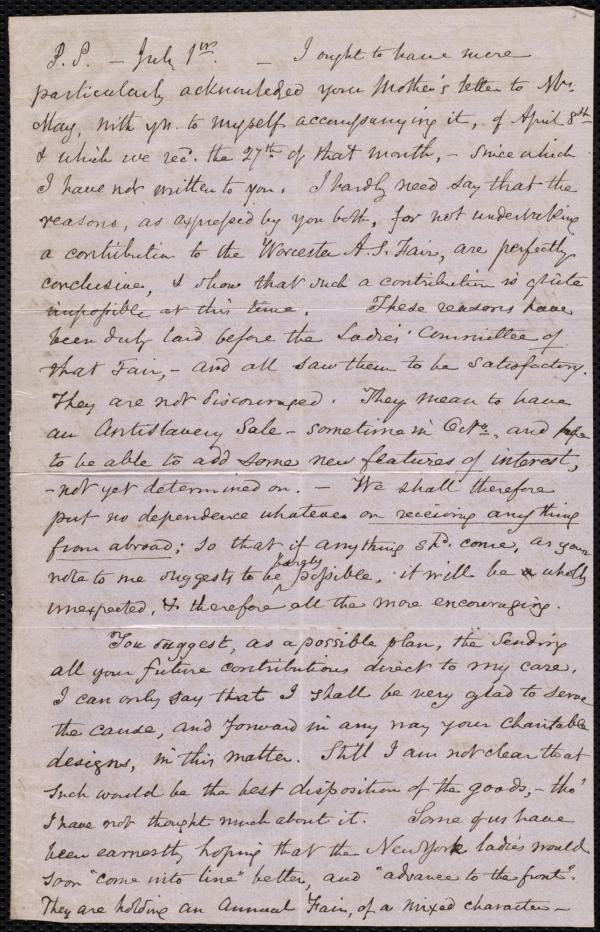 P.S. – July 1st. – I ought to have more
particularly acknowledged your Mother's letter to Mr.
May, with yrs. to myself accompanying it, of April 8th
& which we recd. the 27th of that month, – since which
I have not written to you. I hardly need say that the
reasons, as expressed by you both, for not undertaking
a contribution to the Worcester A.S. Fair, are perfectly
conclusive, & show that such a contribution is quite
impossible at this time. These reasons have
been duly laid before the Ladies' Committee of
that Fair, – and all saw them to be satisfactory.
They are not discouraged. They mean to have
an Antislavery Sale – sometime in Octr., and hope
to be able to add some new features of interest,
– not yet determined on. – We shall therefore
put no dependence whatever on receiving anything
from abroad; so that if anything shd. come, as your
note to me suggests to be barely possible, it will be wholly
unexpected, & therefore all the more encouraging.
You suggest, as a possible plan, the sending
all your future contributions direct to my care.
I can only say that I shall be very glad to serve
the cause, and forward in any way your charitable
designs, in this matter. Still I am not clear that
such would be the best disposition of the goods, – tho'
I have not thought much about it. Some of us have
been earnestly hoping that the New York ladies would
soon "come into line" better, and "advance to the front".
They are holding an Annual Fair, of a mixed character –